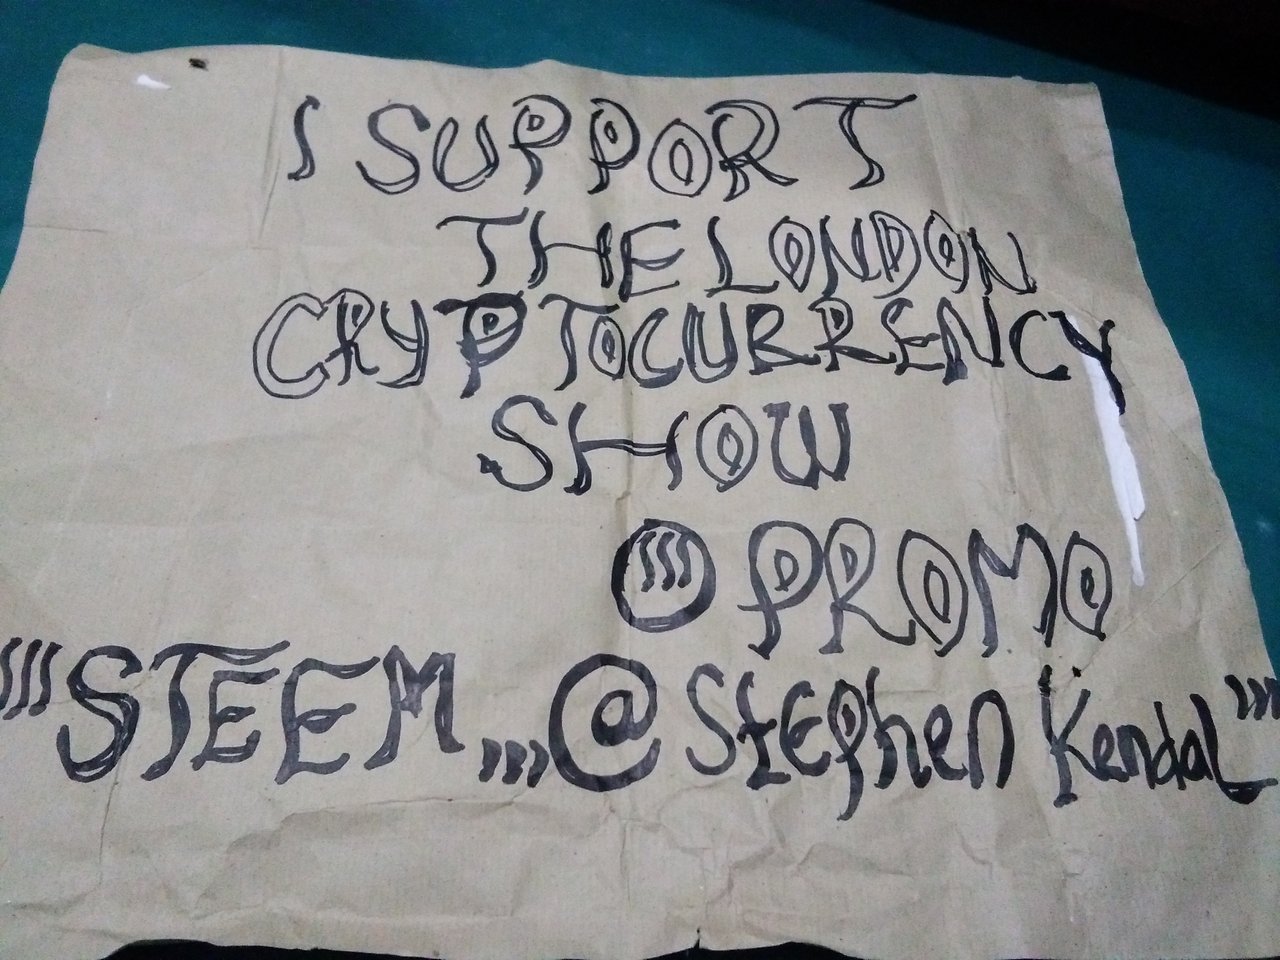 I SUPPORT
THE LONDON
CRYPTOCURRENCY
SHOW
PROMO
STEEM,,,@Stephen Kendal